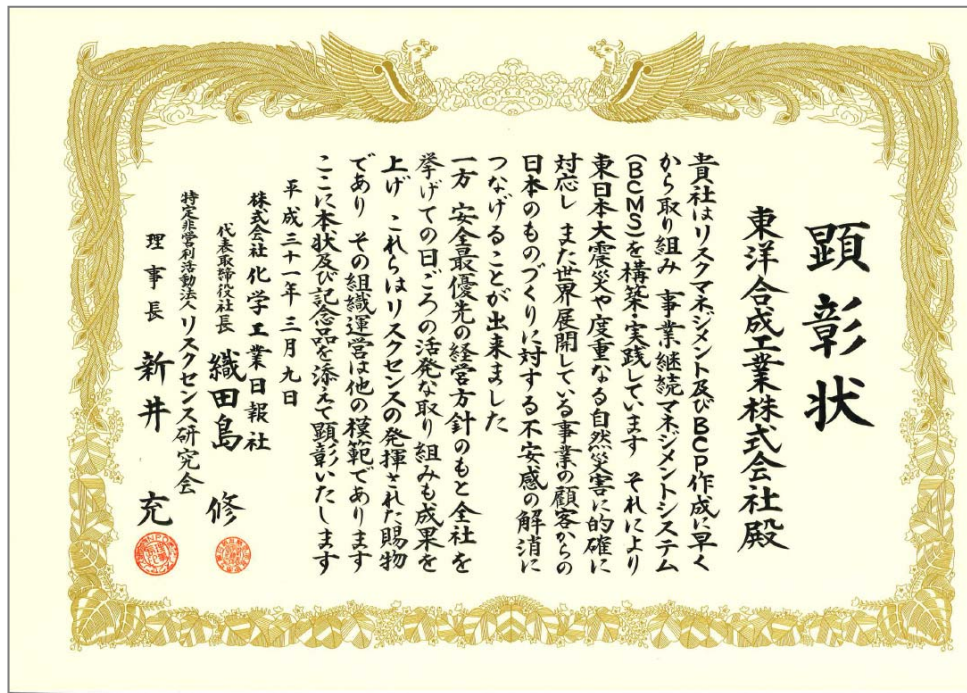 顕彰状
東洋合成工業株式会社殿
貴社はリスクマネジメント及びBCP作成に早く
から取り組み 事業継続マネジメントシステム
(BCMS)を構築・実践しています それにより
東日本大震災や度重なる自然災害に的確に
対応し また世界展開している事業の顧客からの
日本のものづくりに対する不安感の解消に
つなげることが出来ました
一方 安全最優先の経営方針のもと全社を
挙げての日ごろの活発な取り組みも成果を
上げ これらはリスクセンスの発揮された賜物
であり その組織運営は他の模範であります
ここに本状及び記念品を添えて顕彰いたします
平成三十一年三月九日
株式会社化学工業日報社
代表取締役社長 織田島 修
特定非営利活動法人リスクセンス研究会
理事長 新井 充